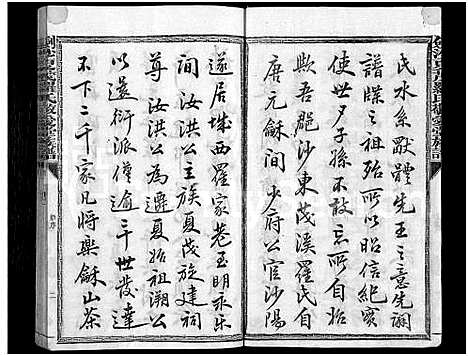 氏水系猷體先王之意先
譜牒之祖殆所以昭信紀實
使世夕子孫不敢忘所自始
歟吾邑沙東茂溪羅氏自
唐元龢間少府公官沙陽
遂居城西羅家巷至明永樂
間汝洪公主族夏茂旋建祠
尊汝洪公為遷夏始祖溯公
以還衍派僅逾二十世發達
不下二千家凡將樂龢山茶